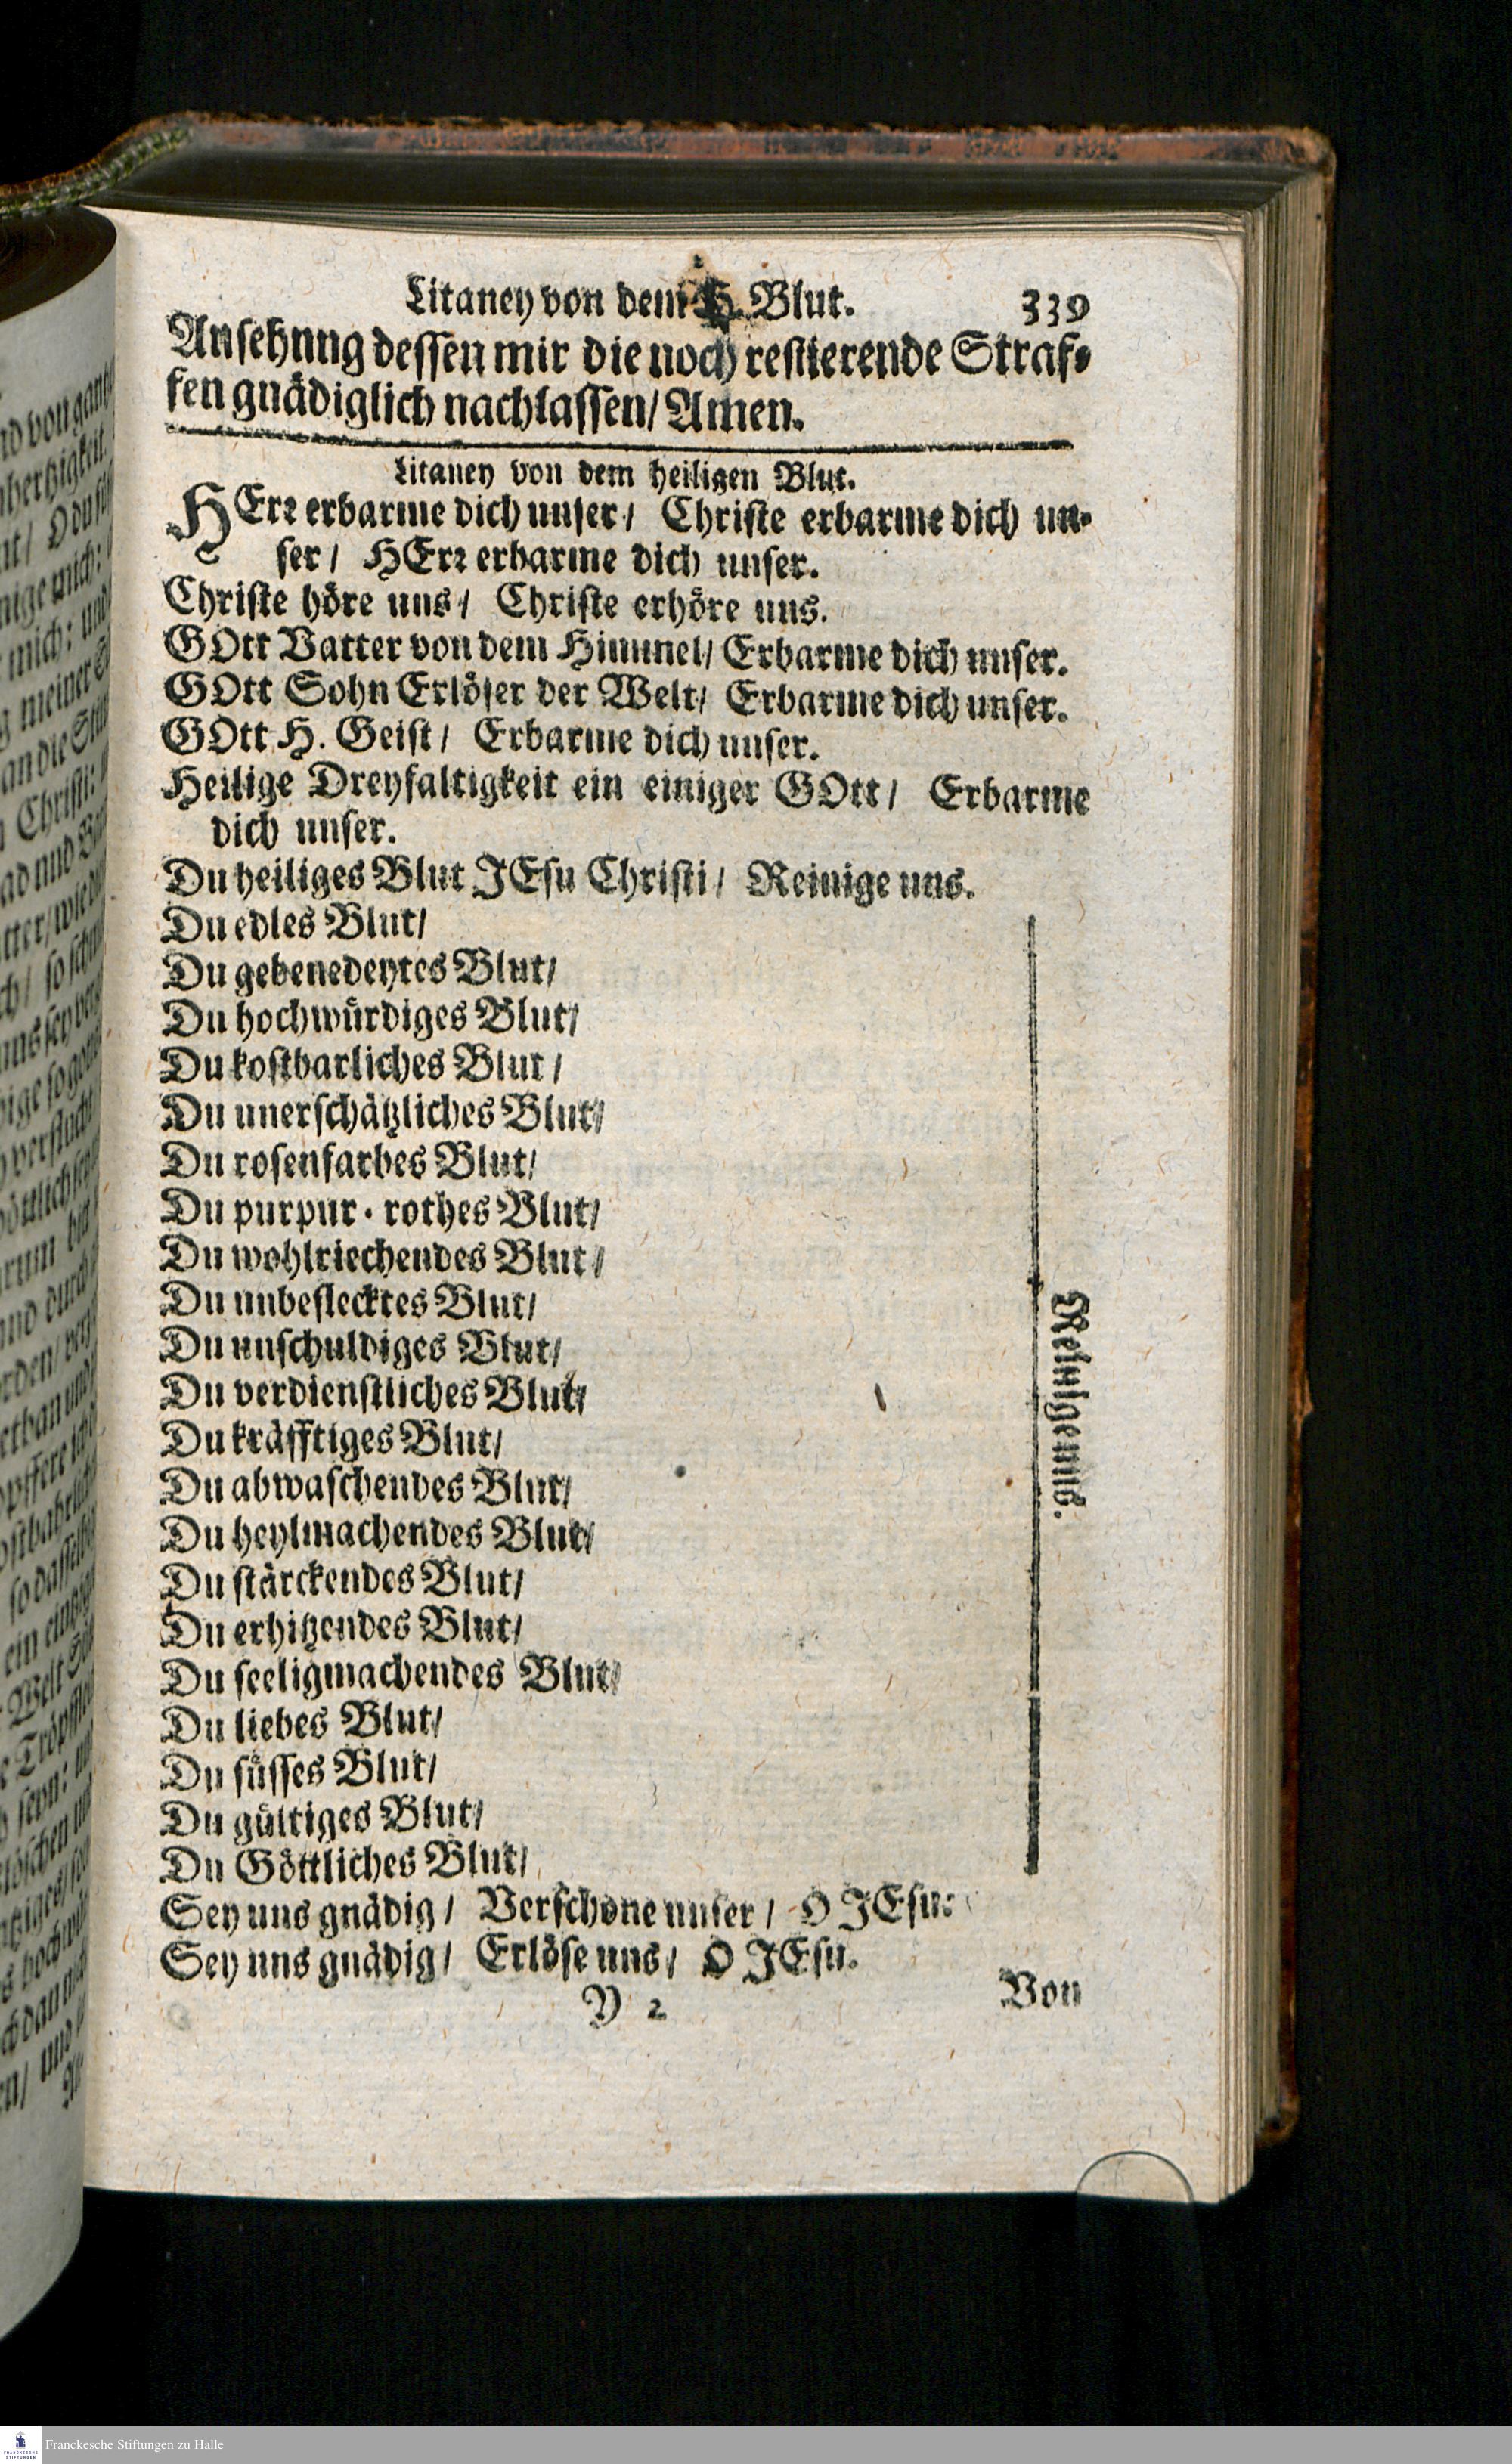 Litaney von dem H. Blut. 339
Ansehnng dessen mir die noch restierende Straf-
fen gnädiglich nachlassen/ Amen.
Litaney von dem heiligen Blut.
HErr erbarme dich unser/ Christe erbarme dich un-
ser/ HErr erbarme dich unser.
Christe höre uns/ Christe erhöre uns.
GOtt Vatter von dem Himmel/ Erbarme dich unser.
GOtt Sohn Erlöser der Welt/ Erbarme dich unser.
GOtt H. Geist/ Erbarme dich unser.
Heilige Dreyfaltigkeit ein einiger GOtt/ Erbarme
dich unser.
Du heiliges Blut JEsu Christi/ Reinige uns.
Du edles Blut/
Du gebenedeytes Blut/
Du hochwürdiges Blut/
Du kostbarliches Blut/
Du unerschätzliches Blut/
Du rosenfarbes Blut/
Du purpur-rothes Blut/
Du wohlriechendes Blut/
Du unbeflecktes Blut/
Du unschuldiges Blut/
Du verdienstliches Blut/
Du kräfftiges Blut/
Du abwaschendes Blut/
Du heylmachendes Blut/
Du stärckendes Blut/
Du erhitzendes Blut/
Du seeligmachendes Blut/
Du liebes Blut/
Du süsses Blut/
Du gültiges Blut/
Du Göttliches Blut/
Reinige uns.
Sey uns gnädig/ Verschone unser/ O JEsu.
Sey uns gnädig/ Erlöse uns/ O JEsu.
Y 2 Von
Franckesche Stiftungen zu Halle